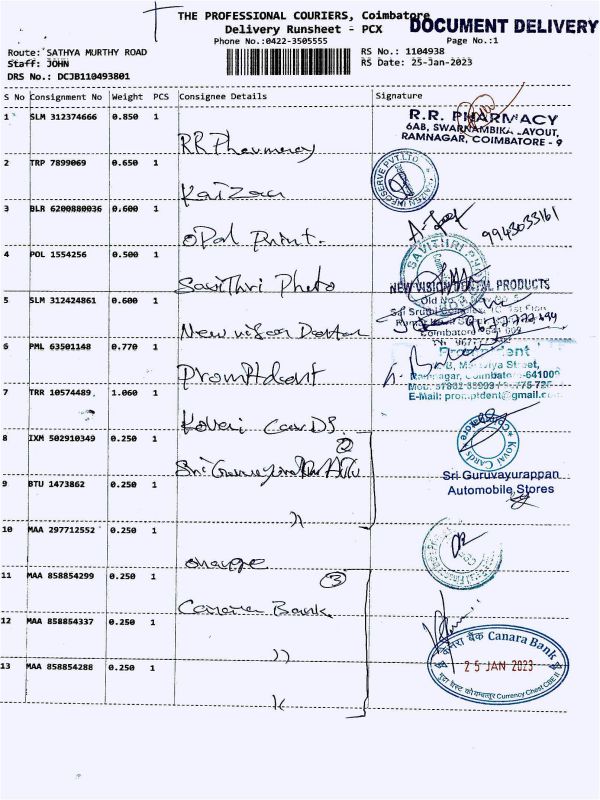 THE PROFESSIONAL COURIERS, Coimbatore
DOCUMENT DELIVERY
Delivery Runsheet - PCX
Phone No.:0422-3505555
Page No.:1
Route: SATHYA MURTHY ROAD
RS No.: 1104938
Staff: JOHN
RS Date: 25-Jan-2023
DRS No.: DCJB110493801
S No Consignment No Weight PCS Consignee Details Signature
1 SLM 312374666 0.850 1
R.R. PHARMACY
6AB, SWARNAMBIKA LAYOUT,
RAMNAGAR, COIMBATORE - 9
RR Pharmacy
2 TRP 7899069 0.650 1
KAIZEN INFOSERVE PVT.LTD
Kaizen
3 BLR 6200880036 0.600 1
9943033161
Opal Print.
4 POL 1554256 0.500 1
SAVITHRI PH
Savithri Photo
NEW VISION DENTAL PRODUCTS
5 SLM 312424861 0.600 1
Coimbatore 641 009
New vision Dental
6 PML 63501148 0.770 1
Promptdent
Ramnagar, Coimbatore-641009
E-Mail: promptdent@gmail.com
Promptdent
7 TRR 10574489 1.060 1
Kovai Cards
Kovai Cards
8 IXM 502910349 0.250 1
2
Sri Guruvayurappan
Automobile Stores
9 BTU 1473862 0.250 1
"
10 MAA 297712552 0.250 1
11 MAA 858854299 0.250 1
3
Canara Bank
12 MAA 858854337 0.250 1
केनरा बैंक Canara Bank
"
13 MAA 858854288 0.250 1
25 JAN 2023
मुद्रा चेस्ट कोयम्बत्तूर Currency Chest CBE II
"